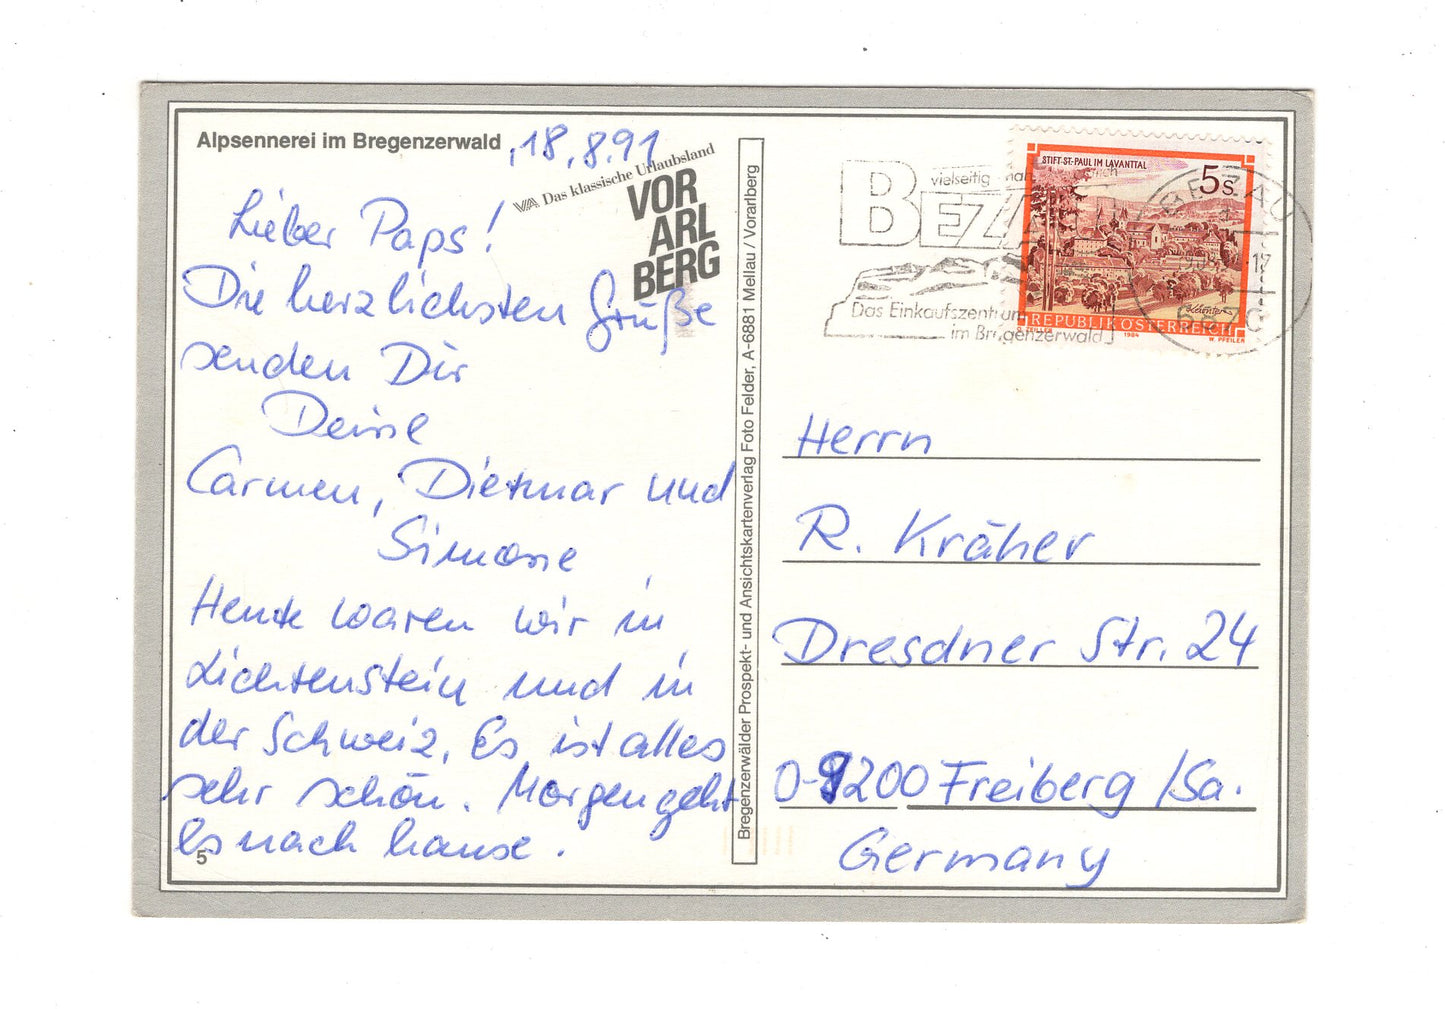 Alpsennerei im Bregenzerwald
, 18.8.91
VA Das klassische Urlaubsland
VOR
ARL
BERG
Lieber Paps!
Die herzlichsten Grüße
senden Dir
Deine
Carmen, Dietmar und
Simone
Heute waren wir in
Lichtenstein und in
der Schweiz. Es ist alles
sehr schön. Morgen geht
es nach hause.
5
Bregenzerwälder Prospekt- und Ansichtskartenverlag Foto Felder, A-6881 Mellau / Vorarlberg
vielseitig
BEZA
Das Einkaufszentrum
im Bregenzerwald
STIFT·ST·PAUL IM LAVANTTAL
5s
REPUBLIK ÖSTERREICH
1984
W. PFEILER
BEZAU
17
6870
Herrn
R. Kräher
Dresdner Str. 24
O-9200 Freiberg /Sa.
Germany